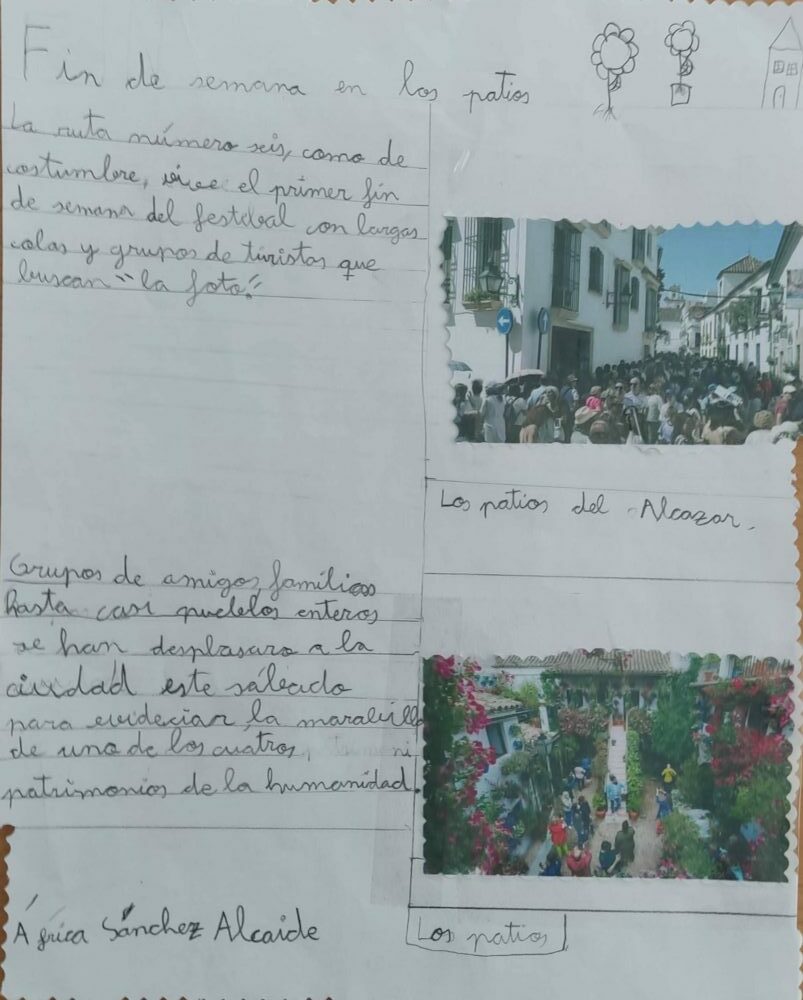 Fin de semana en los patios
La ruta número seis, como de
costumbre, vive el primer fin
de semana del festebal con largas
colas y grupos de turistas que
buscan "la foto".
Los patios del Alcazar.
Grupos de amigos, familias
hasta casi pueblos enteros
se han desplasaro a la
ciudad este sábado
para evideciar la maravilla
de uno de los cuatros, ni
patrimonios de la humanidad.
África Sánchez Alcaide
Los patios